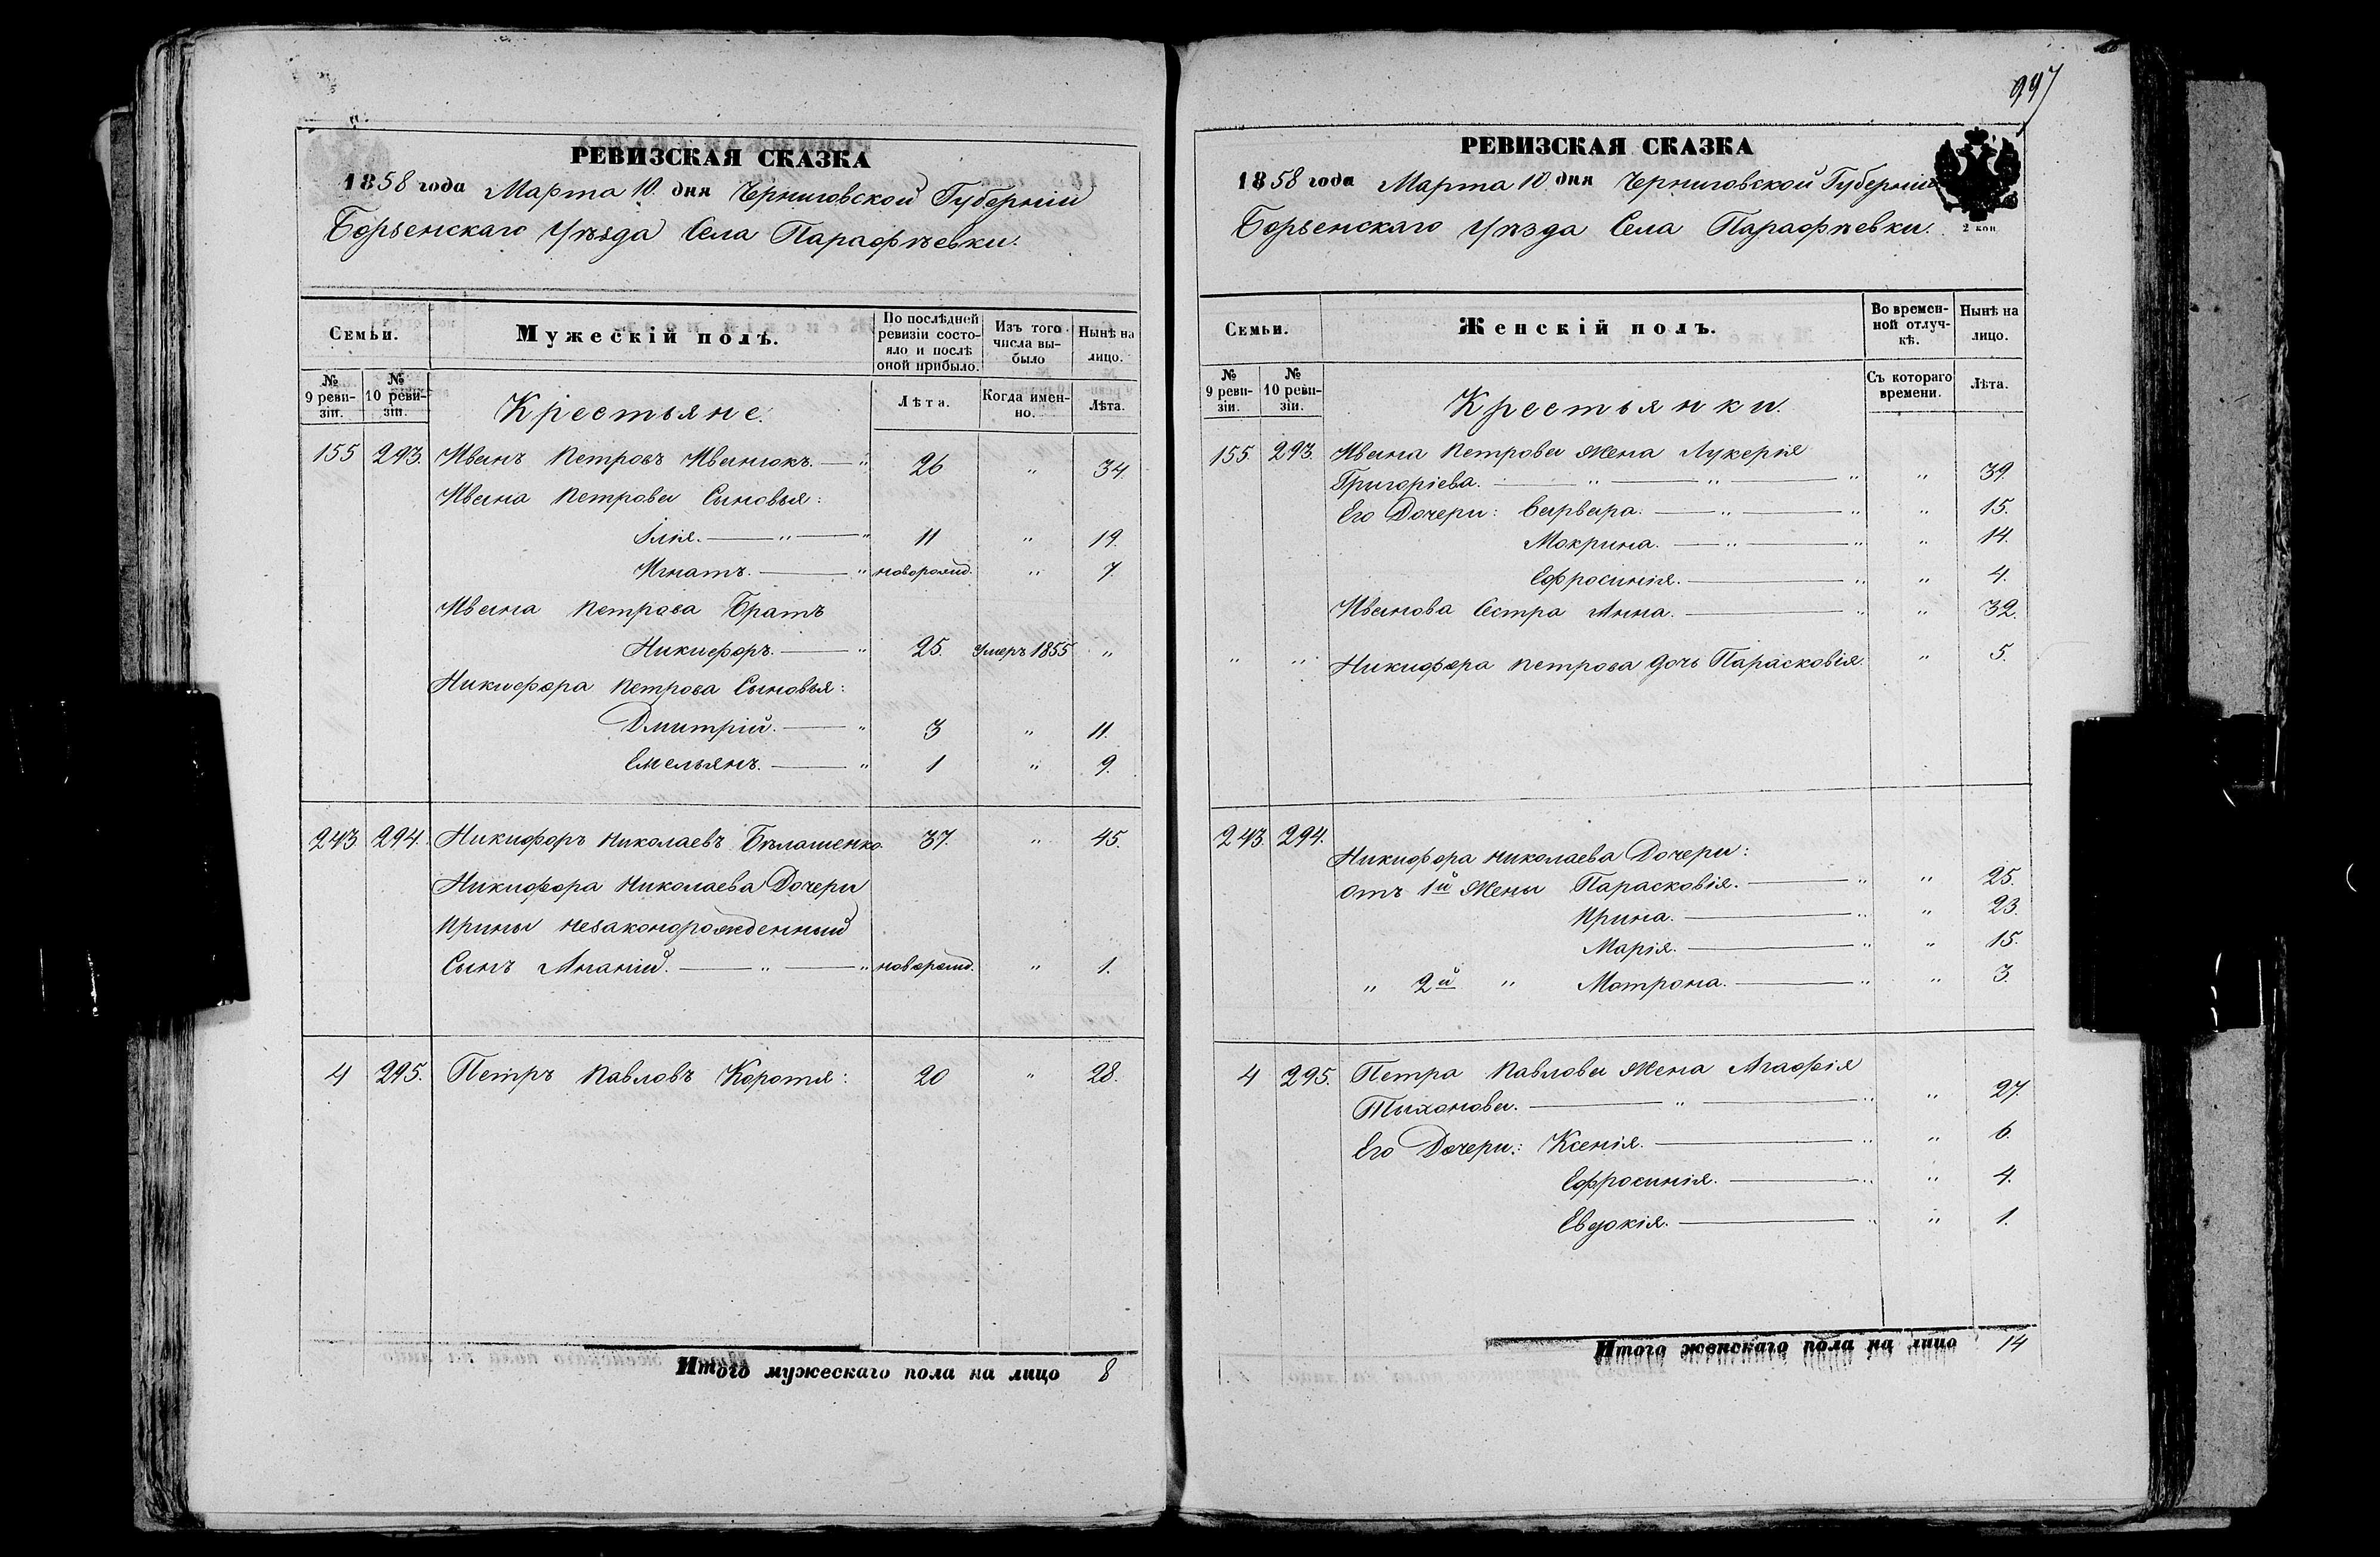 РЕВИЗСКАЯ СКАЗКА
1858 года Марта 10. дня Черниговской Губерніи
Борзенскаго Уѣзда Села Парафѣевки.
Семьи.
Мужескій полъ.
По послѣдней ревизіи состояло и послѣ оной прибыло.
Изъ того числа выбыло
Нынѣ на лицо.
№ 9 ревизіи.
№ 10 ревизіи.
Крестьяне.
Лѣта.
Когда именно.
Лѣта.
155 293. Иванъ Петровъ Иванюкъ. — " 26 " 34.
Ивана Петрова Сыновья:
Ілія. — " — " 11 " 19.
Игнатъ. — " новорожд. " 7.
Ивана Петрова Братъ
Никифоръ. — " 25. Умеръ 1855 "
Никифора Петрова Сыновья:
Дмитрій. — " 3 " 11.
Емельянъ. — " 1 " 9.
243 294. Никифоръ Николаевъ Бѣлашенко. 37. " 45.
Никифора Николаева Дочери
Ирины незаконорожденный
Сынъ Ананій. — " — " новорожд. " 1.
4 295. Петръ Павловъ Коротя: 20 " 28.
Итого мужескаго пола на лицо 8
997
РЕВИЗСКАЯ СКАЗКА
1858 года Марта 10 дня Черниговской Губерніи
Борзенскаго Уѣзда Села Парафѣевки.
2 коп
Семьи.
Женскій полъ.
Во временной отлучкѣ.
Нынѣ на лицо.
№ 9 ревизіи.
№ 10 ревизіи.
Крестьянки.
Съ котораго времени.
Лѣта.
155. 293. Ивана Петрова Жена Лукерія
Григоріева. — " — " — " " 39.
Его Дочери: Варвара. — " — " " 15.
Мокрина. — " — " " 14.
Ефросинія. — " " 4.
Иванова Сестра Анна. — " " 32.
" " Никифора Петрова дочь Парасковія. " 5.
243. 294.
Никифора Николаева Дочери:
отъ 1й Жены Парасковія. — " " 25.
Ирина. — " " 23.
Марія. — " " 15.
" 2й " Мотрона. — " " 3.
4 295. Петра Павлова Жена Агафія
Тихонова. — " — " " 27.
Его Дочери: Ксенія. — " " 6.
Ефросинія. — " " 4.
Евдокія. — " " 1.
Итого женскаго пола на лицо 14